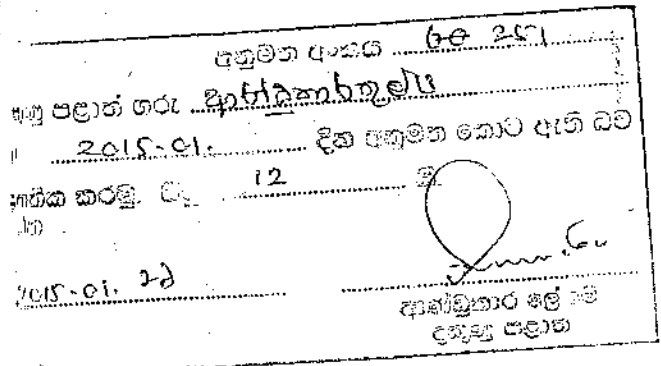 අනුමත අංකය ...... 251
පළාත් ගරු ආණ්ඩුකාරතුමා
2015-01. දින අනුමත කොට ඇති බව
කරමු. 12
2015-01. 22
ආණ්ඩුකාර ලේකම්
දකුණු පළාත